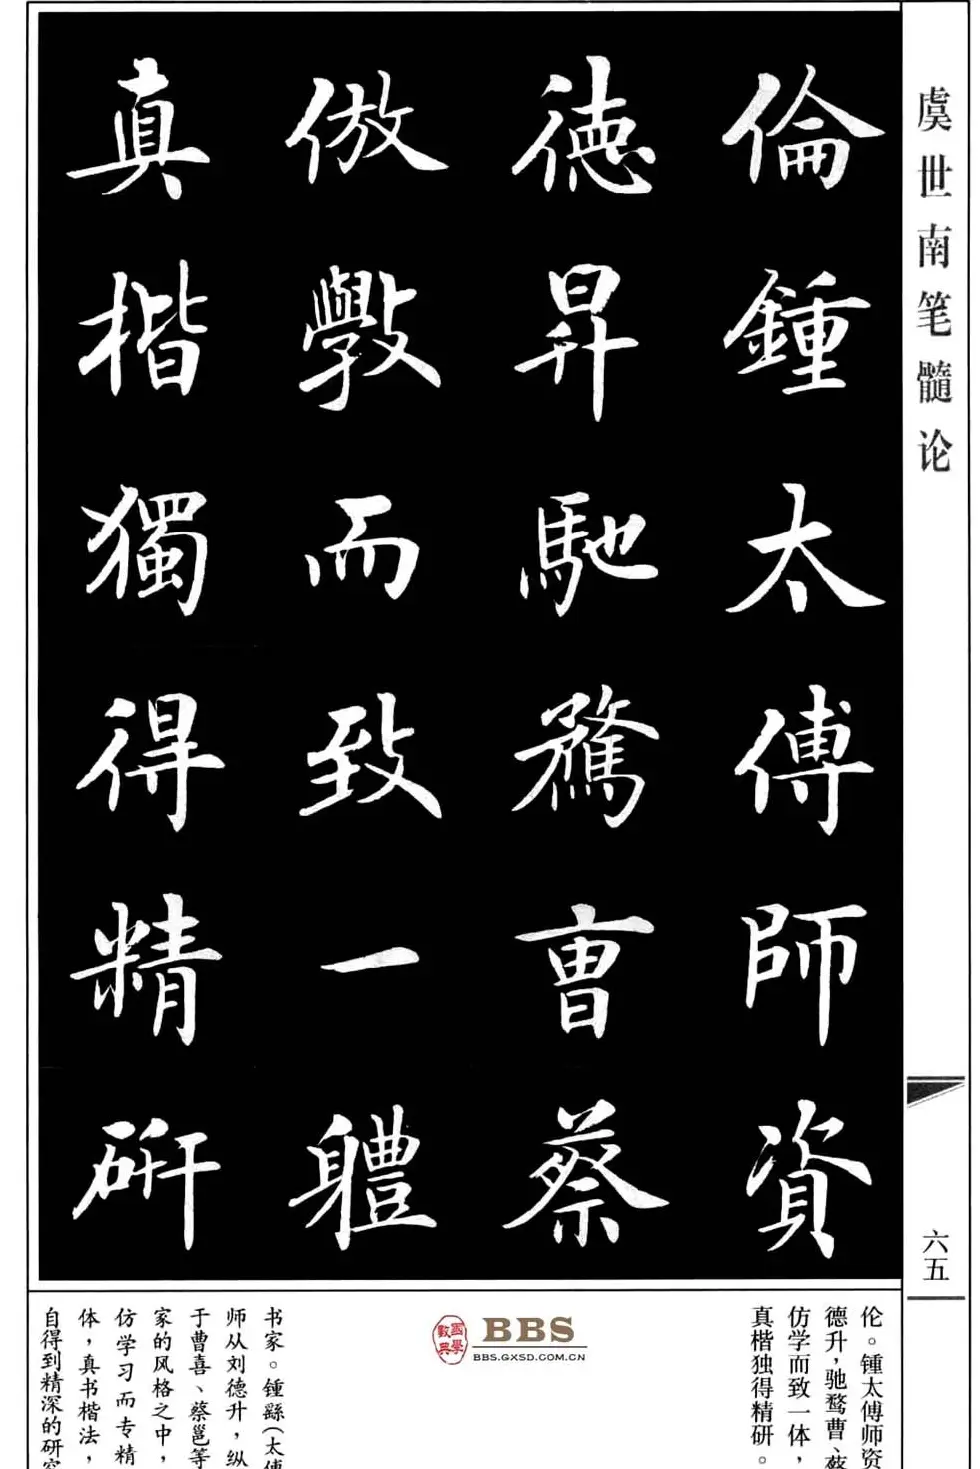 虞世南笔髓论
六五
倫鍾太傅師資
德昇馳騖曹蔡
倣斆而致一體
真楷獨得精研
伦。锺太傅师资
德升，驰骛曹、蔡
仿学而致一体，
真楷独得精研。
國學數典
BBS
BBS.GXSD.COM.CN
书家。锺繇（太傅
师从刘德升，纵
于曹喜、蔡邕等
家的风格之中，
仿学习而专精
体，真书楷法，
自得到精深的研究